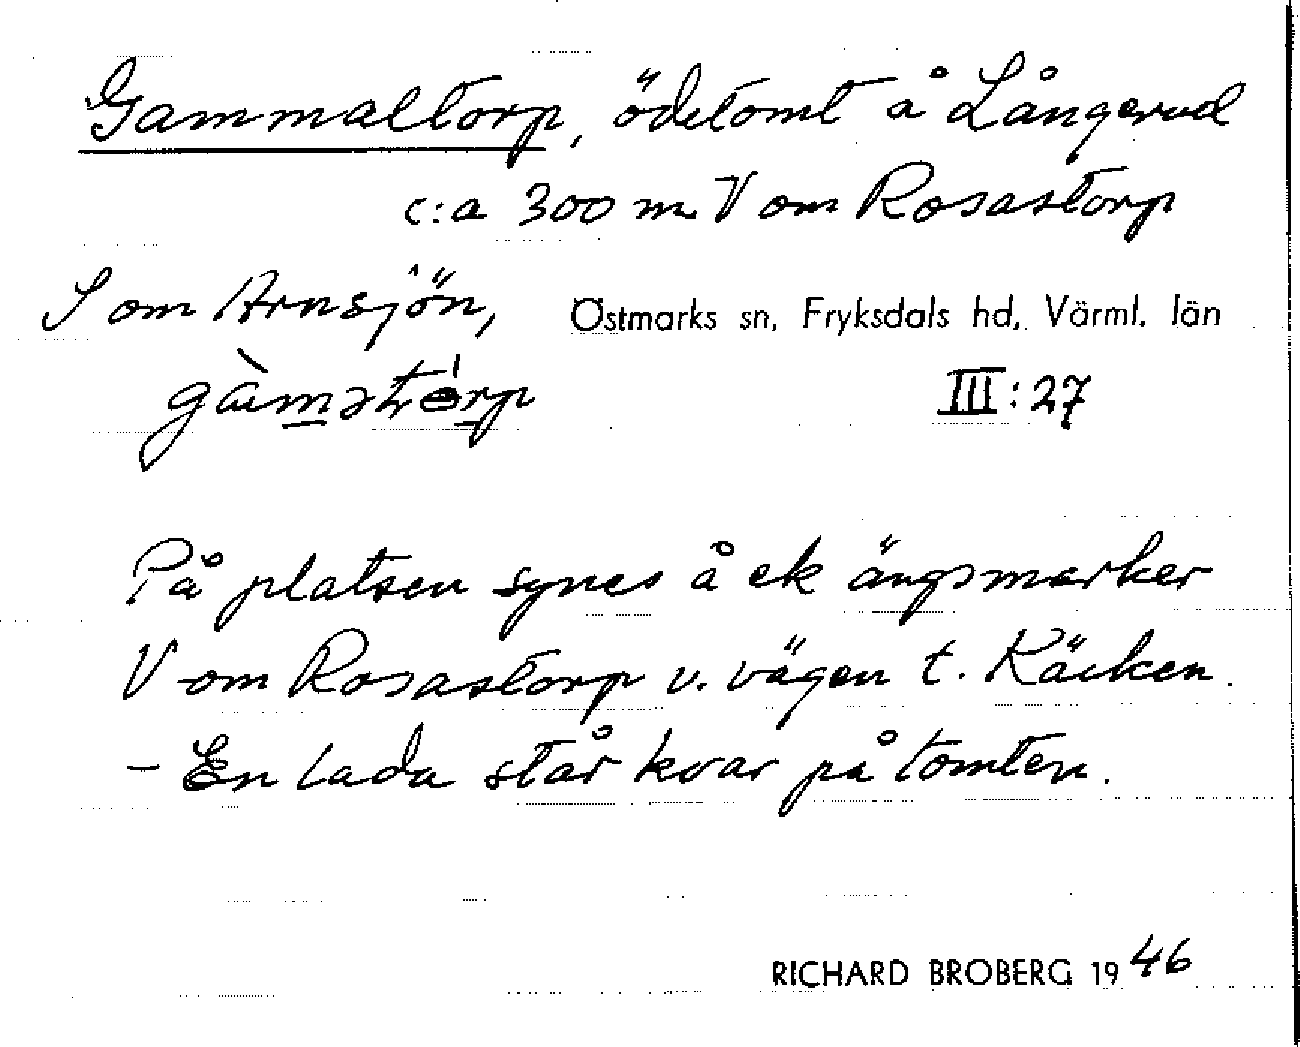 Gammaltorp, ödetomt å Långerud
c:a 300 m V om Rosastorp
S om Arnsjön, Östmarks sn, Fryksdals hd, Värml. län
III:27
På platsen synes å ek ängsmarker
V om Rosastorp v. vägen t. Käcken.
- En lada står kvar på tomten.
RICHARD BROBERG 1946